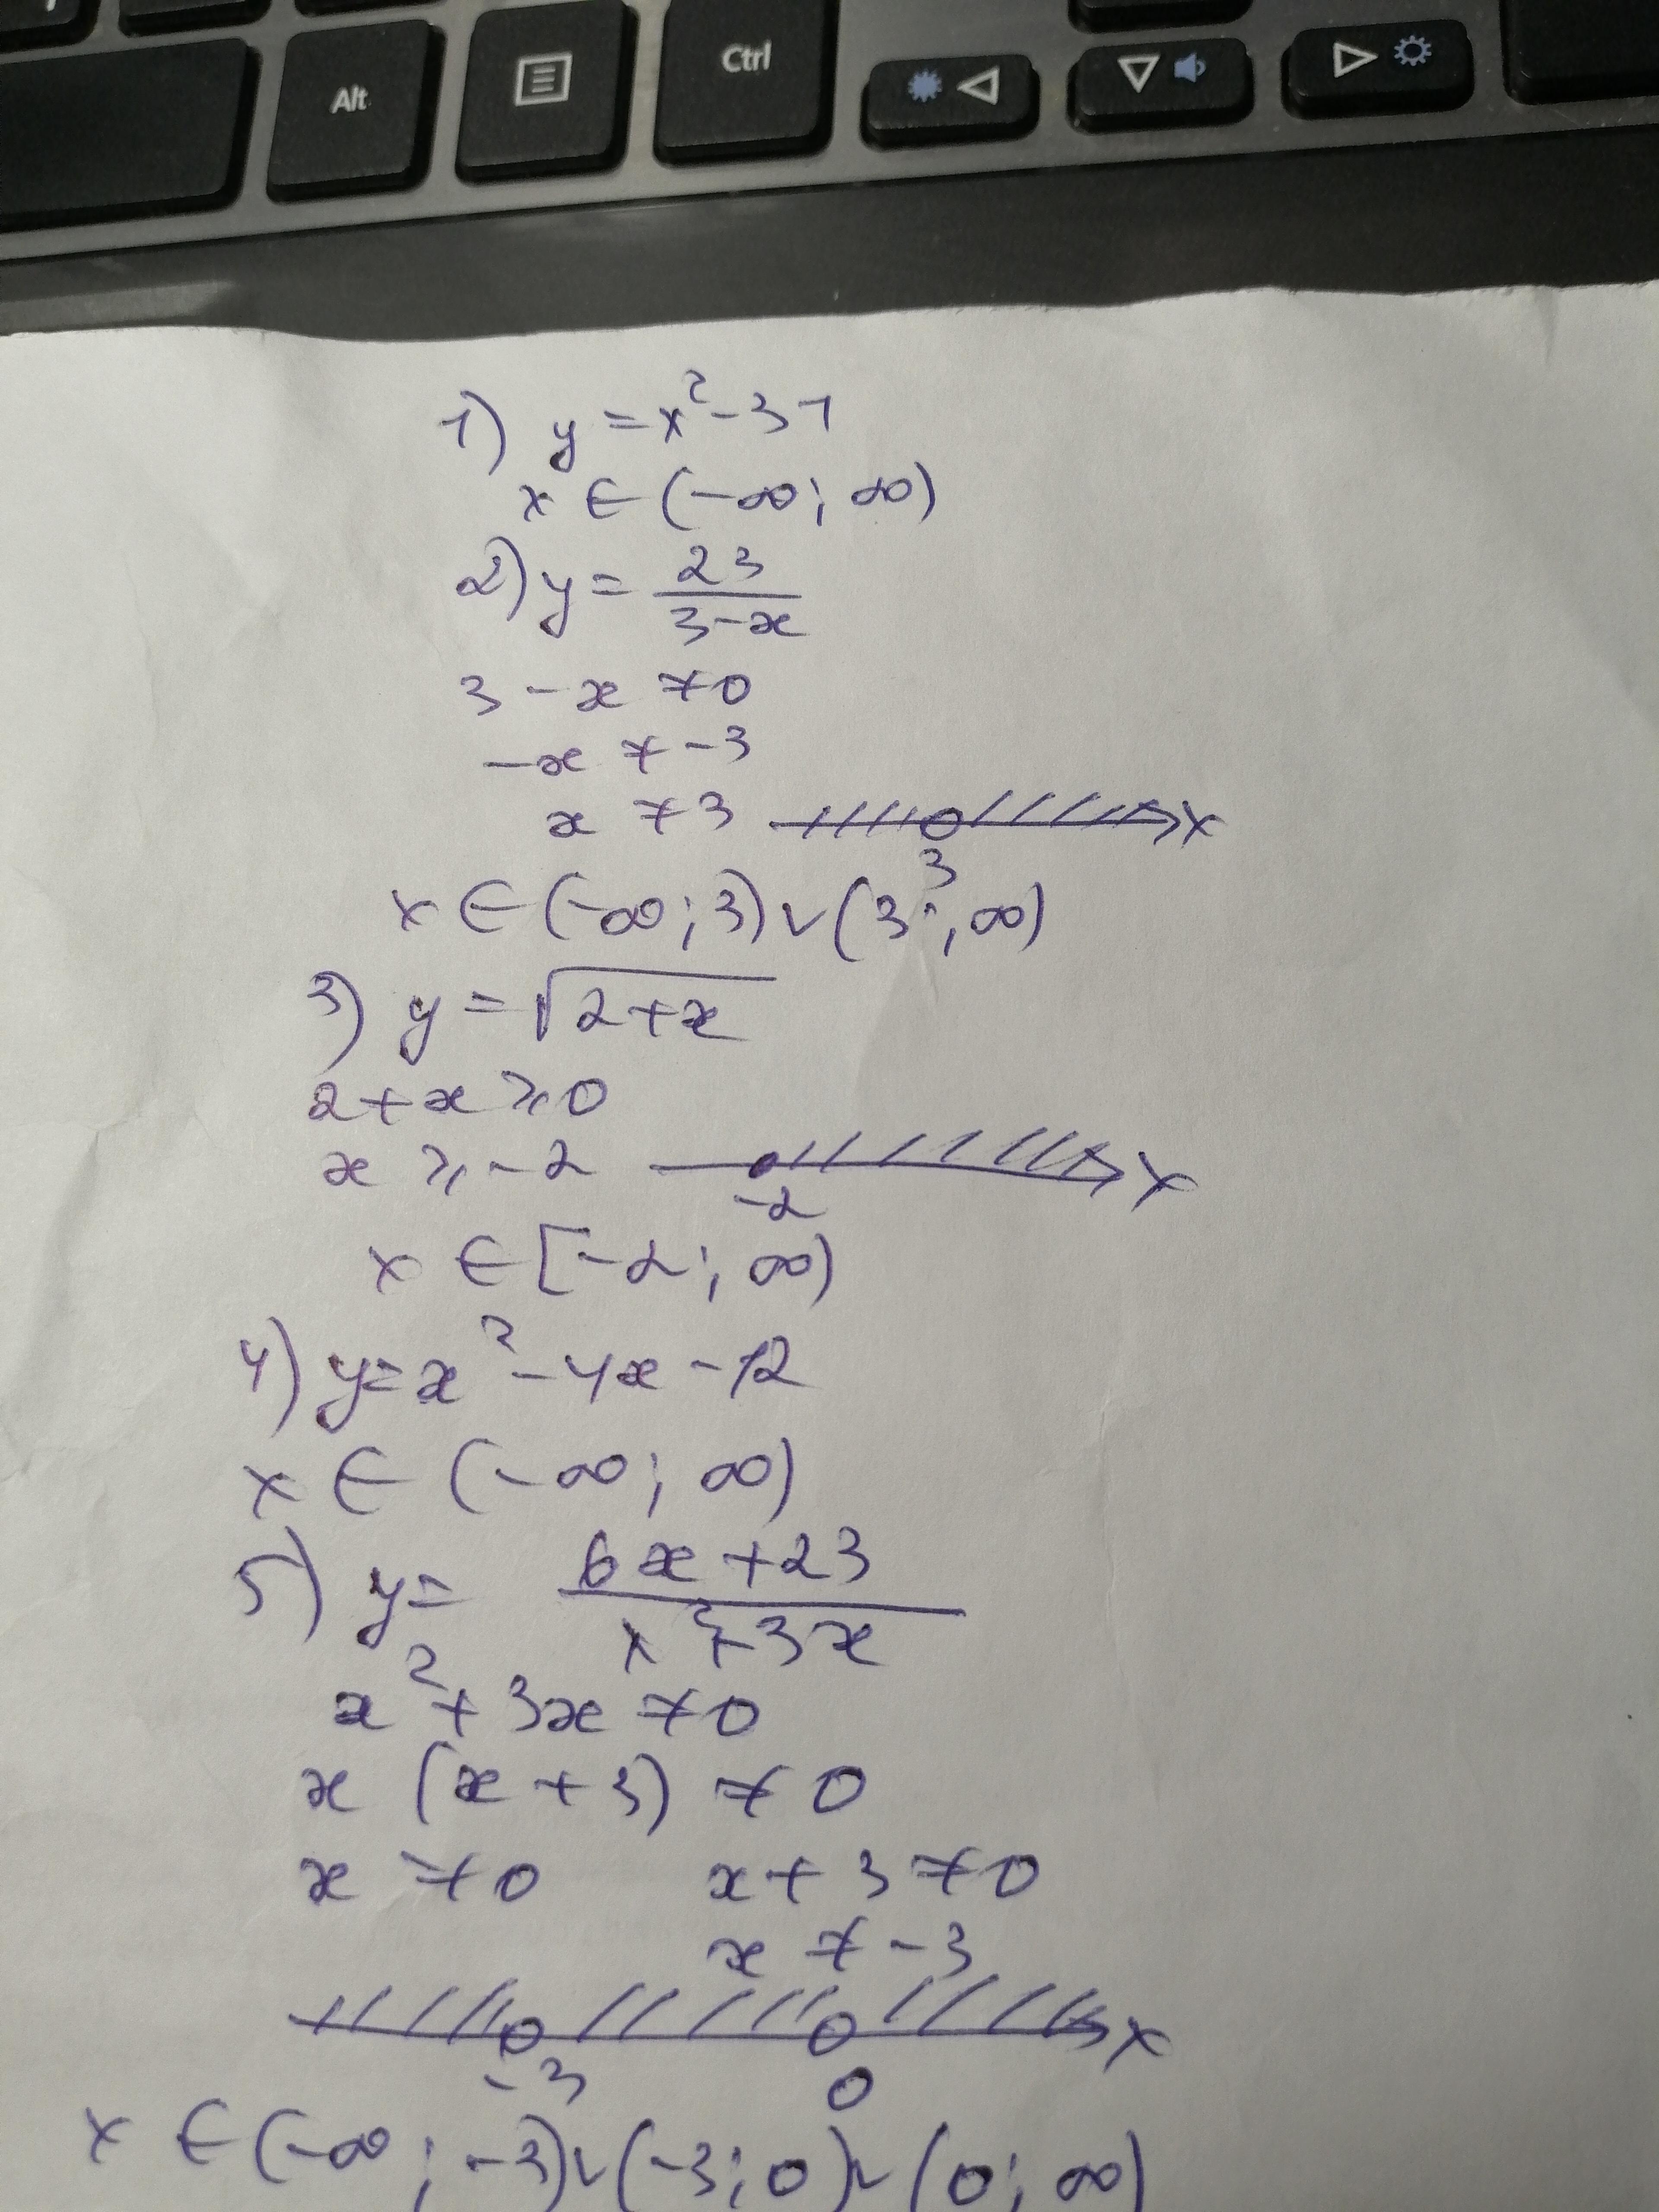 Alt
Ctrl
1) y = x² - 31
x ∈ (-∞; ∞)
2) y = 23/(3-x)
3 - x ≠ 0
-x ≠ -3
x ≠ 3
x
3
x ∈ (-∞; 3) ∪ (3; ∞)
3) y = √(2+x)
2 + x ⩾ 0
x ⩾ -2
x
-2
x ∈ [-2; ∞)
4) y = x² - 4x - 12
x ∈ (-∞; ∞)
5) y = (6x + 23)/(x² + 3x)
x² + 3x ≠ 0
x (x + 3) ≠ 0
x ≠ 0 x + 3 ≠ 0
x ≠ -3
x
-3 0
x ∈ (-∞; -3) ∪ (-3; 0) ∪ (0; ∞)